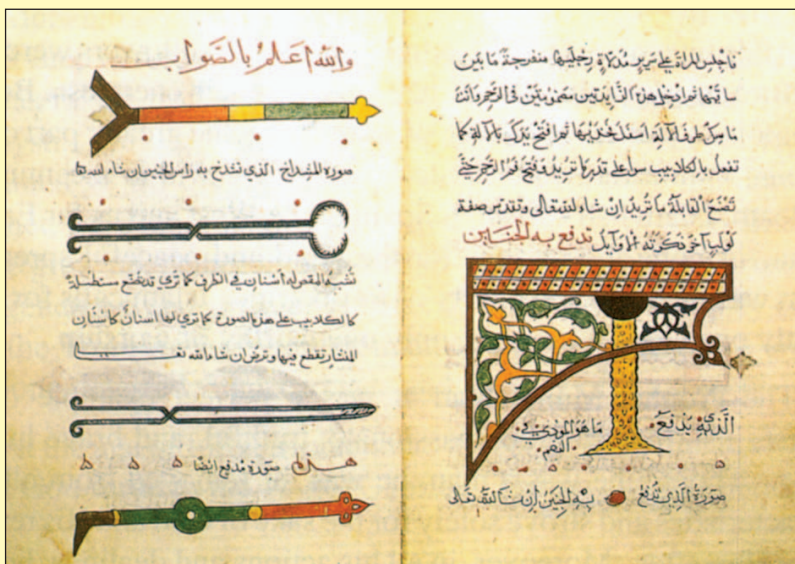 فاجلس المراة على سرير مدلاة رجليها منفرجة ما بين
ساقيها ثم ادخل هذه الزايدتين مضمومتين في الرحم وانت
ماسك طرف الالة اسفل فخذيها ثم افتح يدك بالالة كما
تفعل بالكلاليب سوا على قدر ما تريد وفتح فم الرحم حتى
تصنع القابلة ما تريد ان شاء الله تعالى وتقدس صفة
لولب اخر ذكرته الاوايل تدفع به الجنين
الذي يدفع ما هو
صورة الذي تدفع به الجنين ان شا الله تعالى
والله اعلم بالصواب
صورة المشداخ الذي تشدخ به راس الجنين ان شاء الله
اسنان في الطرف كما ترى
كالكلاليب على هذه الصورة كما ترى لها اسنان كاسنان
المنشار تقطع فيها وترض ان شاء الله تعا
هذه صورة مدفع ايضا ه ه ه